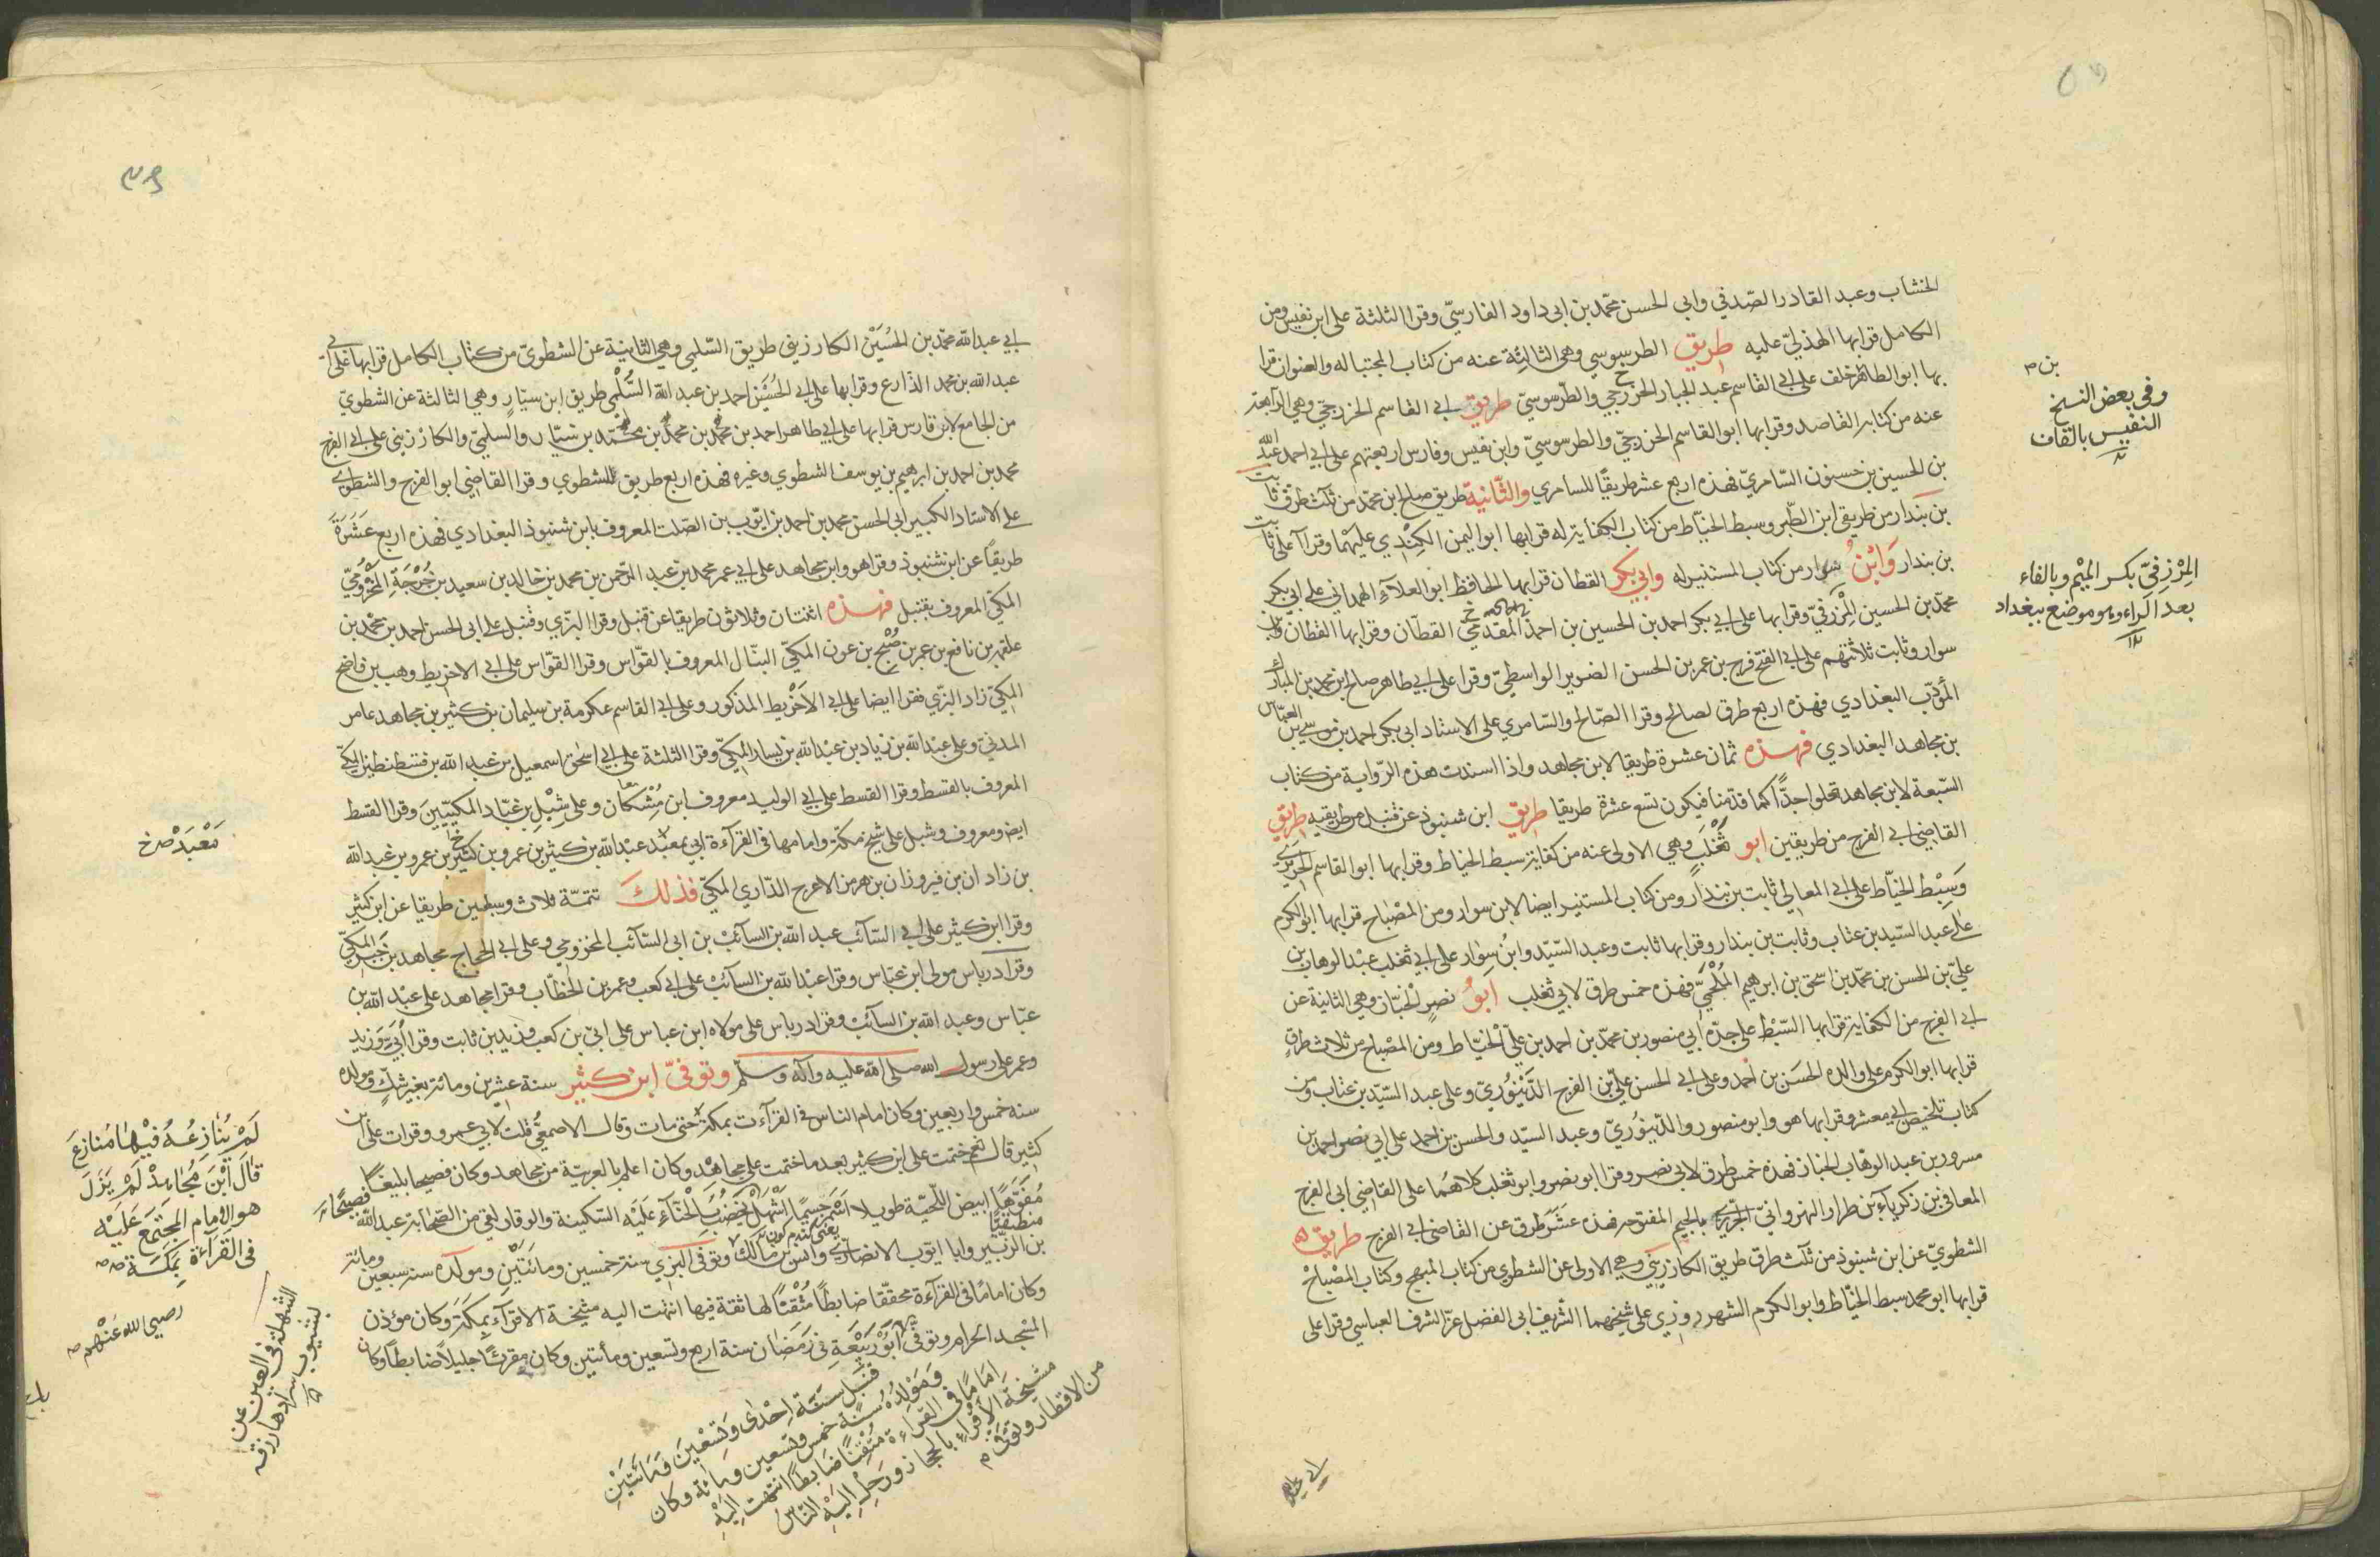 الخشاب وعبد القادر الصّدفي وابي الحسن محمّد بن ابي داود الفارسيّ وقرا الثلثة على ابن نفيس ومن
الكامل قرا بها الهذليّ عليه طريق الطرسوسي وهى الثالثة عنه من كتاب المجتبا له والعنوان قرا
بها ابو الطاهر خلف على ابي القاسم عبد الجبار الخزرجي والطّرسوسيّ طريق ابي القاسم الخزرجيّ وهي الرابعة
عنه من كتابه القاصد وقرا بها ابو القاسم الخزرجيّ والطرسوسيّ وابن نفيس وفارس اربعتهم على ابي احمد عبد الله
بن الحسين بن حسنون السّامريّ فهذه اربع عشر طريقًا للسامري والثّانية طريق صالح ابن محمّد من ثلث طرق ثابت
بن بندار من طريقى ابن الطّبر وسبط الخيّاط من كتاب الكفاية له قرا بها ابو اليمن الكِنْدي عليهْما وقرآ على ثابت
بن بندار وَابْنُ سوار من كتاب المستنير له وابي بكر القطان قرا بها الحافظ ابو العلآء الهمداني على ابي بكر
محمّد بن الحسين المِزْرَفيّ وقرا بها على ابي بكر احمد بن الحسين بن احمد المقدّمي القطّان وقرا بها القطان وابن
سوار وثابت ثلاثتهم على ابي الفتح فرج بن عمر بن الحسن الضرير الواسطيّ وقرا على ابي طاهر صالح ابن محمد بن المبارك
المؤدّب البغدادي فهذه اربع طرق لصالح وقرا الصّالح والسّامري على الاستاد ابي بكر احمد بن موسى بن العبّاس
بن مجاهد البغدادي فهذه ثمان عشرة طريقا لابن مجاهد واذا اسندت هذه الرّواية من كتاب
السّبعة لابن مجاهد تعلو احدًّا كما قدّمنا فيكون تسع عشرة طريقا طريق ابن شنبوذ عن قنبل من طريقيه طريق
القاضي ابي الفرج من طريقين ابو تَغْلَب وهي الاولى عنه من كفاية سبط الخياط وقرا بها ابو القاسم الحريري
وَسِبْط الخيّاط على ابي المعالي ثابت بن بندار ومن كتاب المستنير ايضا لابن سوار ومن المصْباح قرا بها ابو الكرم
على عبد السّيد بن عتاب وثابت بن بندار وقرا بها ثابت وعبد السّيّد وابنُ سوار على ابي تغلب عبد الوهاب بن
عليّ بن الحسن بن محمّد بن اسحق بن ابرهيم المُلْحَميّ فهذه خمس طرق لابي تغلب ابوُ نصر الخبّاز وهي الثانية عن
ابي الفرج من الكفاية قرا بها السّبْط على جدّه ابي منصور بن محمّد بن احمد بن عليّ الخيّاط ومن المصْباح من ثلاث طرق
قرا بها ابو الكرم على والده الحسَن بن احمد وعلى ابي الحسن عليّ بن الفرج الدّيْنَوُريّ وعلى عبد السّيّد بن عتاب ومن
كتاب تلخيص ابي معشر وقرا بها هو وابو منصور والدّينوُريّ وعبد السيّد والحسن بن احمد على ابي نصر احمد بن
مسرور بن عبد الوهّاب الخباز فهذه خمس طرق لابي نصر وقرا ابو نصر وابو تغلب كلاهُما على القاضي ابي الفرج
المعافى بن زكرياء بن طرار النهروانيّ الجَريري بالجيم المفتوحه فهذه عَشر طرق عن القاضي ابي الفرج طريق
الشطويّ عن ابن شنبوذ من ثلث طرق طريق الكارزيني وهي الاولى عن الشطوي من كتاب المبهج وكتاب المصْباح
قرا بها ابو محمد سبط الخيّاط وابو الكرم الشهرزوزي على شيخهما الشّريف ابي الفضل عزّ الشرف العباسي وقرا على
بن م
وفي بعض النسخ
النفيس بالقاف
المِزْرفيّ بكسر الميْم وبالفاء
بعد الراء وهو موضع ببغداد
١٢
ابي عبد الله محمّد بن الحُسَيْن الكارزيني طريق السّلمي وهي الثانية عن الشطويّ من كتاب الكامل قرا بها على ابي
عبد الله بن محمد الذّارع وقرا بها على ابي الحُسَيْن احمد بن عبد الله السُّلْمي طريق ابن سيّار وهي الثالثة عن الشطويّ
من الجامع لابن فارس قرا بها على ابي طاهر احمد بن محمّد بن محمّد بن محمّد بن سيّار والسلميّ والكارزيني على ابي الفرج
محمد بن احمد بن ابرهيم بن يوسف الشطوي وغيره فهذه اربع طريق للشطوي وقرا القاضي ابو الفرج والشطوي
على الاستاد الكبير ابي الحسن محمد بن احمد بن ايّوب بن الصّلت المعروف بابن شنبوذ البغدادي فهذه اربع عَشرَة
طريقًا عن ابن شنبوذ وقرا هو وابن مجاهد على ابي عمر محمد بن عبد الرّحمن بن محمد بن خالد بن سعيد بن جُرْجَة المخْزُوميّ
المكّيّ المعروف بقنبل فهذه اثنتان وثلاثون طريقا عن قنبل وقرا البزّي وقنبل على ابي الحسن احمد بن محمّد بن
علقمه بن نافع بن عمر بن صُبْح بن عون المكيّ النبّال المعروف بالقوّاس وقرا القوّاس على ابي الاخريط وهب بن واضح
المكيّ زاد البزّي فقرا ايضا على ابي الاَخْريط المذكور وعلى ابي القاسم عكرمة بن سليمان بن كثير بن مجاهد عامر
المدني وعلى عبد الله بن زياد بن عبد الله بن يسار المكيّ وقرا الثلثة على ابي اسحٰق اسمعيل بن عبد الله بن قسطنطين المكي
المعروف بالقسط وقرا القسط على ابي الوليد معروف ابن مُشكَان وعلى شِبْل بن عَبّاد المكيّيَن وقرا القسط
ايضا ومعروف وشبل على شيخ مكّة وامامها في القرآءة ابي معبَد عبد الله بن كثير بن عمرو بن كثير بن عمرو بن عبد الله
بن زادان بن فيروزان بن هرمز الاعرج الدّاري المكيّ فذلك تتمّة ثلاث وسبعين طريقا عن ابن كثير
وقرا ابن كثير على ابي السّآئب عبد الله بن السآئب بن ابي السّآئب المخزومي وعلى ابي الحجاج مجاهد بن جَبر المكيّ
وقرا درباس مولى ابن عبّاس وقرا عبد الله بن السآئب على ابي كعب وعمر بن الخطّاب وقرا مجاهد على عبْد الله بن
عبّاس وعبد الله بن السآئب وقرا درباس على مولاه ابن عباس على ابيّ بن كعب وزيد بن ثابت وقرا اُبَيّ وَزيد
وعمر على رسول الله صلى الله عليه وآله وسلّم وتوفيّ ابن كثير سنة عشرين ومائة بغير شكّ ومولده
سنه خمس واربعين وكان امام الناس في القرآءت بمكة حتى مات وقال الاصمعيُّ قلت لابي عمرو وقرات على ابن
كثير قال نعم ختمت على ابن كثير بعد ما ختمت على مجاهْد وكان اعلم بالعربيّة من مجاهد وكان فصيحا بليغًا
مُفوّهًا ابيض اللّحيّة طويلا اسمر جسيمًا اشْهَل يُخضِبُ بِالْحنّآء عَلَيْه السّكينة والوقار لقي من الصّحابة عبد الله
بن الزبّير وابا ايّوب الانصارّي وانس بن مالك وتوفى البزي سنة خمسين ومائتَيْن ومولده سنه سبعين ومائة
وكان امامًا في القرآءة محققًا ضابطًا مُتْقنًا لها ثقة فيها انتهت اليه مشيخة الاقرآء بمكة وكان مؤذن
المسْجد الحرام وتوفى ابَوُرَبيْعَةِ في رَمَضان سنة اربع وتسعين ومأتين وكان مقرئًا جليلاً ضابطًا وكان
قنبل سنة احْدٰى وتسْعيْنَ ومَائتَيْن
وَمَوْلدُه سنة خمس وتسعين ومائة وكان
اِمَامًا في القرَاءة متقْنًا ضابطًا انتهت اليْه
مشيخة الاقراء بالحجاز ورحل اليْه النّاسُ
من الاقطار وتوفى م
مَعْبَدْ صرخ
لَمْ يُنازعُهُ فيْهَا مُنازعَ
قالَ ابْنَ مُجاهدْ لَمْ يَزَل
هو الامام المجتَمَع عَليْه
في القرَآءة بِمَكّة
رضي الله عَنْهم
الشهلة في العين عن
يشوب سوادها زرقة